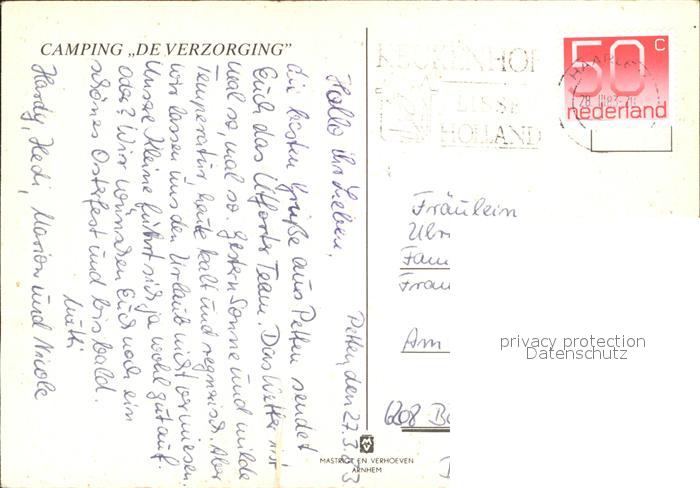 CAMPING „DE VERZORGING”
Petten, den 27.3.83
Hallo ihr Lieben,
die besten Grüße aus Petten sendet
Euch das Utforter Team. Das Wetter ist
mal so, mal so. Gestern Sonne und milde
Temperatur, heute kalt und regnerisch. Aber
wir lassen uns den Urlaub nicht vermiesen.
Unsere Kleine führt sich ja wohl gut auf.
Oder? Wir wünschen Euch noch ein
schönes Osterfest und bis bald.
Mutti
Hardy, Hedi, Marion und Nicole
KEUKENHOF
LISSE
HOLLAND
HAARLEM
28 III 83
50 c
nederland
Fräulein
Ulr
Fam
Frau
Am
6208 B
privacy protection
Datenschutz
MASTRIGT EN VERHOEVEN
ARNHEM